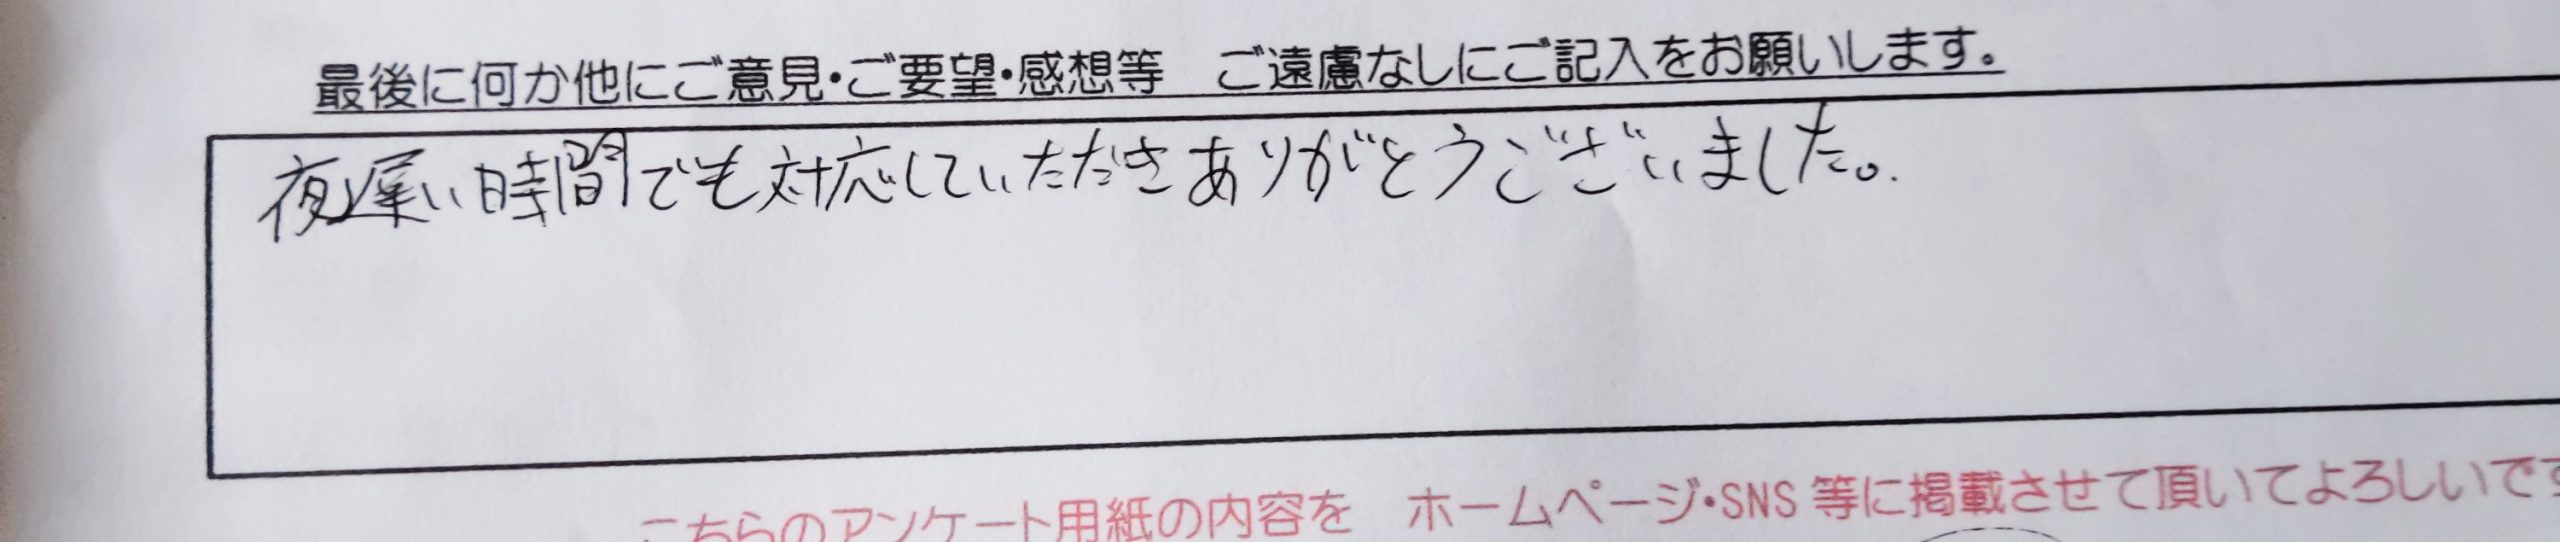 最後に何か他にご意見・ご要望・感想等　ご遠慮なしにご記入をお願いします。
夜遅い時間でも対応していただきありがとうございました。
こちらのアンケート用紙の内容を　ホームページ・SNS 等に掲載させて頂いてよろしいです